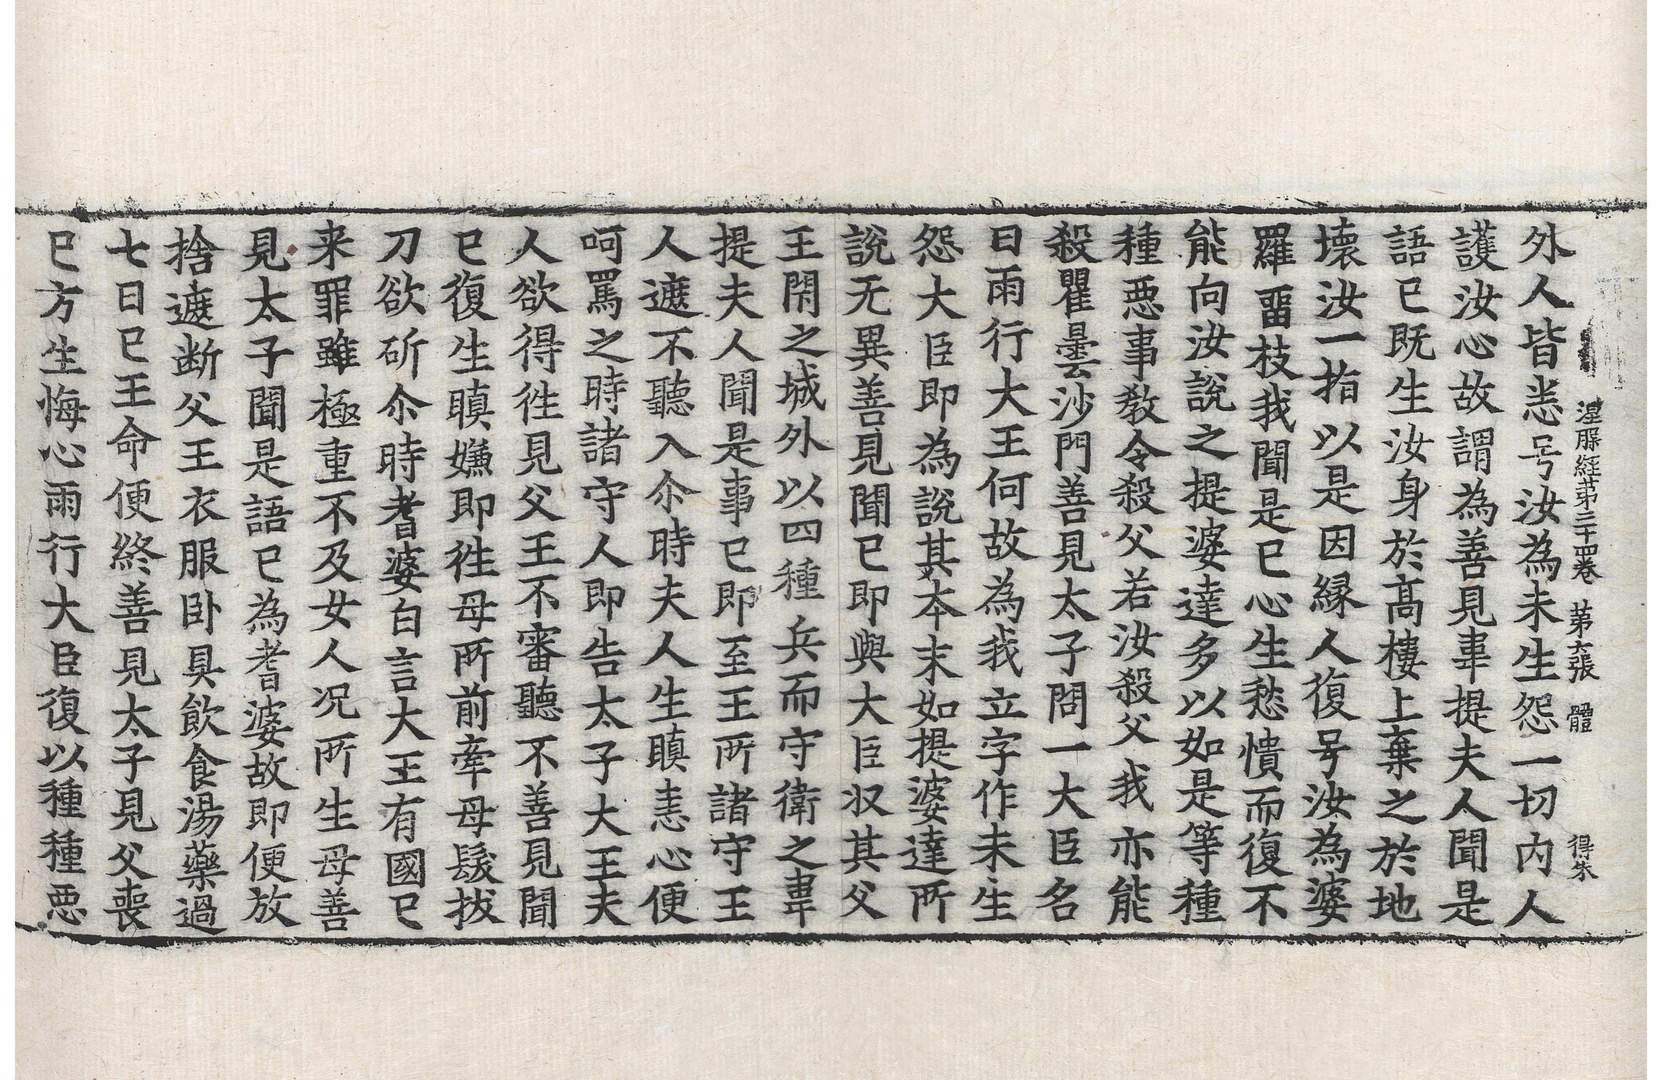 涅槃経苐三十四巻 苐六張 體 得朱
外人皆恙号汝為未生怨一切内人
護汝心故謂為善見韋提夫人聞是
語已既生汝身於髙樓上棄之於地
壞汝一指以是因縁人復号汝為婆
羅畱枝我聞是已心生愁憒而復不
能向汝説之提婆達多以如是等種
種悪事教令殺父若汝殺父我亦能
殺瞿曇沙門善見太子問一大臣名
曰雨行大王何故為我立字作未生
怨大臣即為説其夲末如提婆達所
説无異善見聞已即與大臣収其父
王閇之城外以四種兵而守衛之韋
提夫人聞是事已即至王所諸守王
人遮不聽入尒時夫人生瞋恚心便
呵罵之時諸守人即告太子大王夫
人欲得徃見父王不審聽不善見聞
已復生瞋嫌即徃母所前牽母髮拔
刀欲斫尒時耆婆白言大王有國已
来罪雖極重不及女人况所生母善
見太子聞是語已為耆婆故即便放
捨遮断父王衣服卧具飲食湯藥過
七日已王命便終善見太子見父喪
已方生悔心雨行大臣復以種種悪